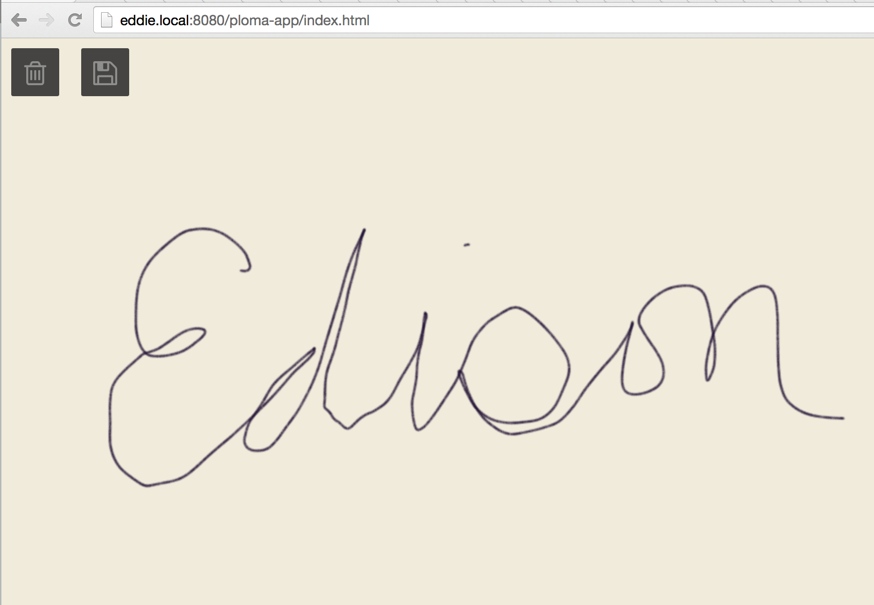 eddie.local:8080/ploma-app/index.html
Ediosn